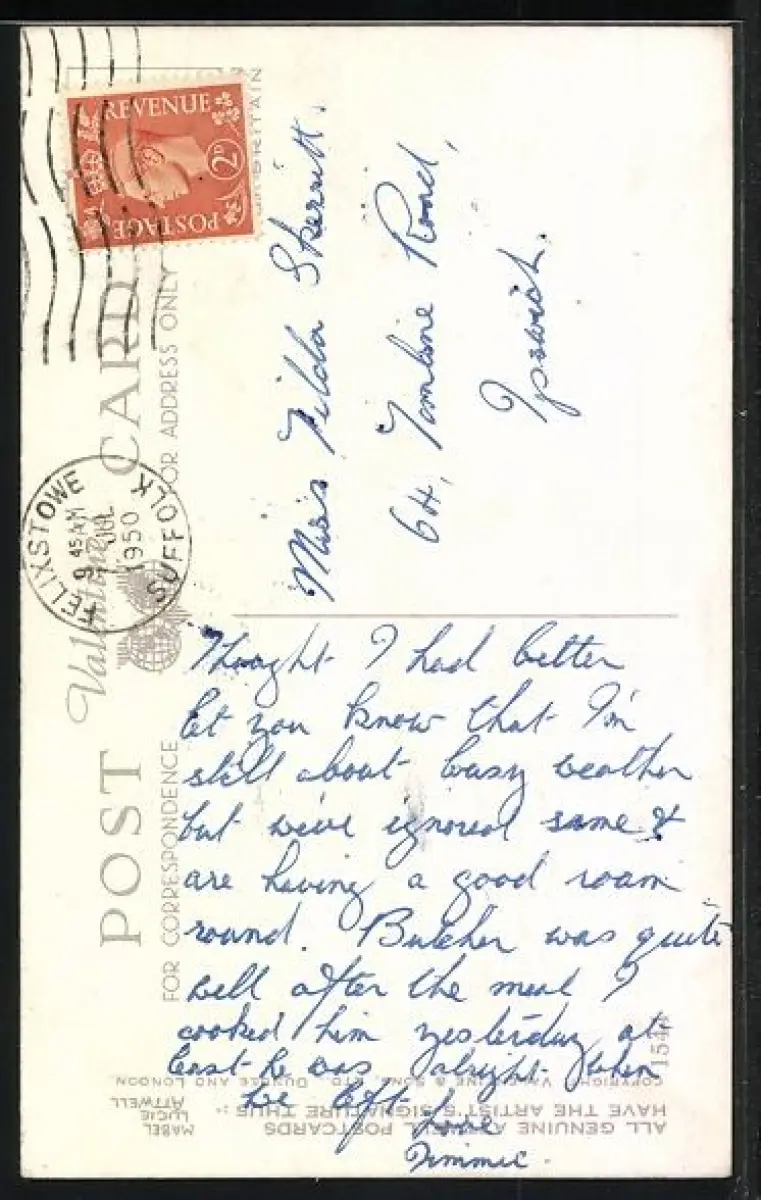 POST CARD
Valentine's
FOR CORRESPONDENCE
FOR ADDRESS ONLY
BRITAIN
REVENUE
2D
POSTAGE
FELIXSTOWE
9 45 AM
JUL
1950
SUFFOLK
Miss Filda Skerritt.
64, Tomline Road,
Ipswich.
Thought I had better
let you know that I'm
still about lousy weather
but we've ignored same &
are having a good roam
round. Butcher was quite
well after the meal I
cooked him yesterday at
least he was alright when
we left Love
Jimmie.
154
COPYRIGHT VALENTINE & SONS, LTD., DUNDEE AND LONDON.
ALL GENUINE ATTWELL POSTCARDS
HAVE THE ARTIST'S SIGNATURE THUS :-
MABEL
LUCIE
ATTWELL